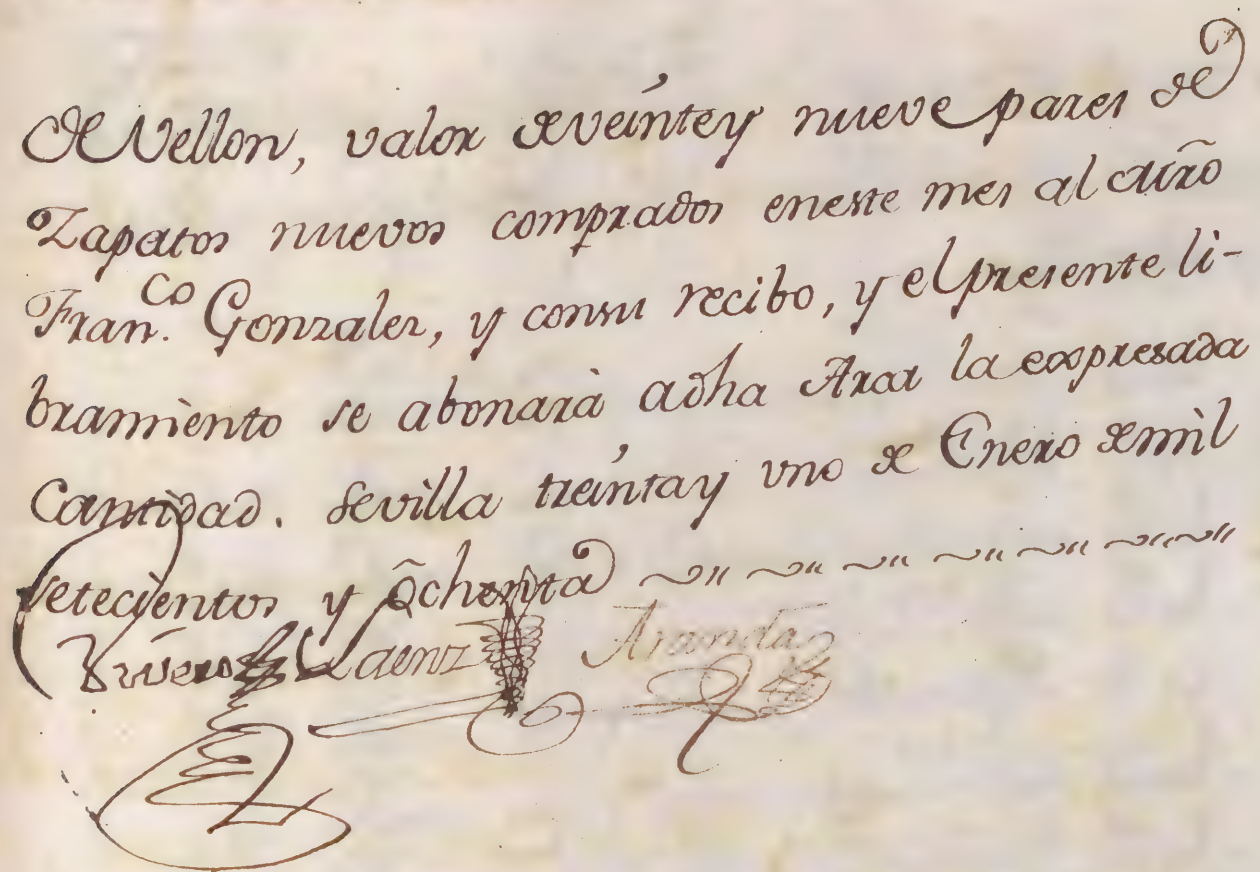 de Vellon, valor deveíntey nueve pares de
Zapatos nuevos comprados eneste mes al Mro
Fran.co Gonzalez, y consu recibo, y el presente li-
bramiento se abonarà adha Arca la expresada
Cantidad. Sevilla treíntay vno de Enero demil
setecientos y õchenta
Saenz Aranda